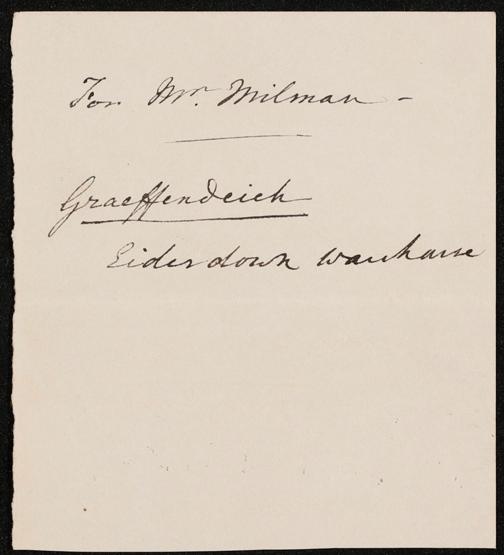 For Mr. Milman -
Graeffendeich
Eiderdown warehouse